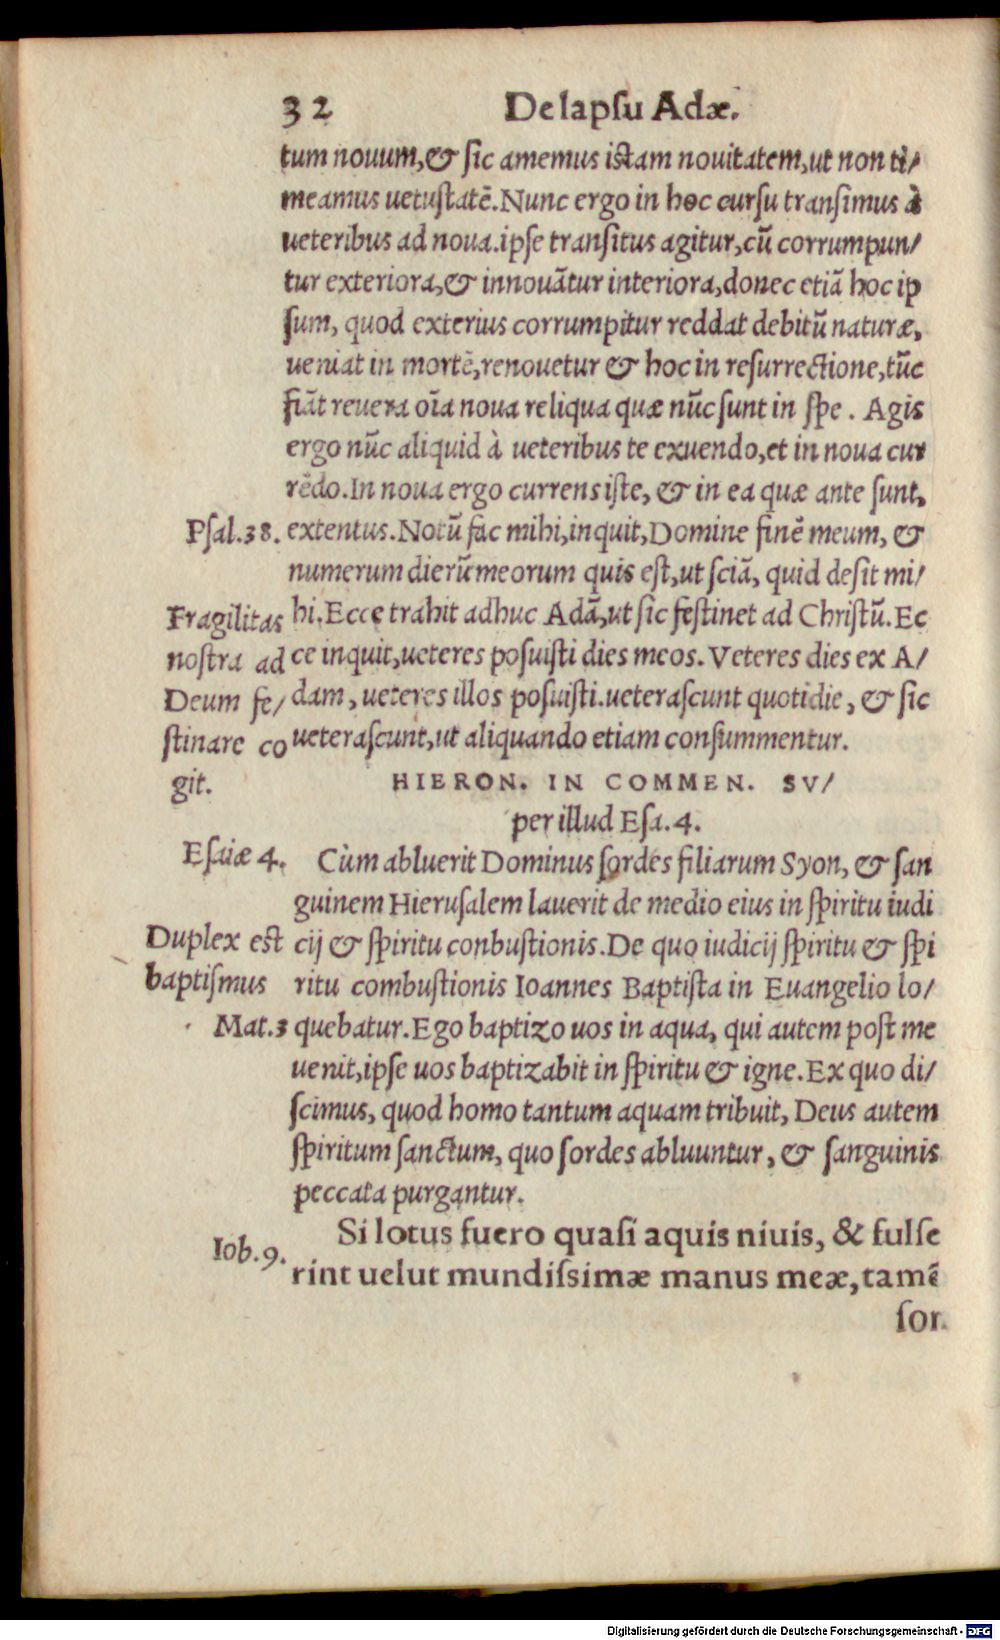 32 De lapſu Adæ.
tum nouum, & ſic amemus iſtam nouitatem, ut non ti/
meamus uetuſtatē. Nunc ergo in hoc curſu tranſimus à
ueteribus ad noua. ipſe tranſitus agitur, cū corrumpun/
tur exteriora, & innouātur interiora, donec etiā hoc ip
ſum, quod exterius corrumpitur reddat debitū naturæ,
ueniat in mortē, renouetur & hoc in reſurrectione, tūc
fiāt reuera oīa noua reliqua quæ nūc ſunt in ſpe. Agis
ergo nūc aliquid à ueteribus te exuendo, et in noua cur
rēdo. In noua ergo currens iſte, & in ea quæ ante ſunt,
Pſal.38. extentus. Notū fac mihi, inquit, Domine finē meum, &
numerum dierū meorum quis eſt, ut ſciā, quid deſit mi/
Fragilitas hi. Ecce trahit adhuc Adā, ut ſic feſtinet ad Chriſtū. Ec
noſtra ad ce inquit, ueteres poſuiſti dies meos. Veteres dies ex A/
Deum fe/ dam, ueteres illos poſuiſti. ueteraſcunt quotidie, & ſic
ſtinare co ueteraſcunt, ut aliquando etiam conſummentur.
git. HIERON. IN COMMEN. SV/
per illud Eſa.4.
Eſaiæ 4. Cùm abluerit Dominus ſordes filiarum Syon, & ſan
guinem Hieruſalem lauerit de medio eius in ſpiritu iudi
Duplex eſt cij & ſpiritu conbuſtionis. De quo iudicij ſpiritu & ſpi
baptiſmus ritu combuſtionis Ioannes Baptiſta in Euangelio lo/
Mat.3 quebatur. Ego baptizo uos in aqua, qui autem poſt me
uenit, ipſe uos baptizabit in ſpiritu & igne. Ex quo di/
ſcimus, quod homo tantum aquam tribuit, Deus autem
ſpiritum ſanctum, quo ſordes abluuntur, & ſanguinis
peccata purgantur.
Si lotus fuero quaſi aquis niuis, & fulſe
Iob.9. rint uelut mundiſsimæ manus meæ, tamē
ſor.
Digitalisierung gefördert durch die Deutsche Forschungsgemeinschaft - DFG